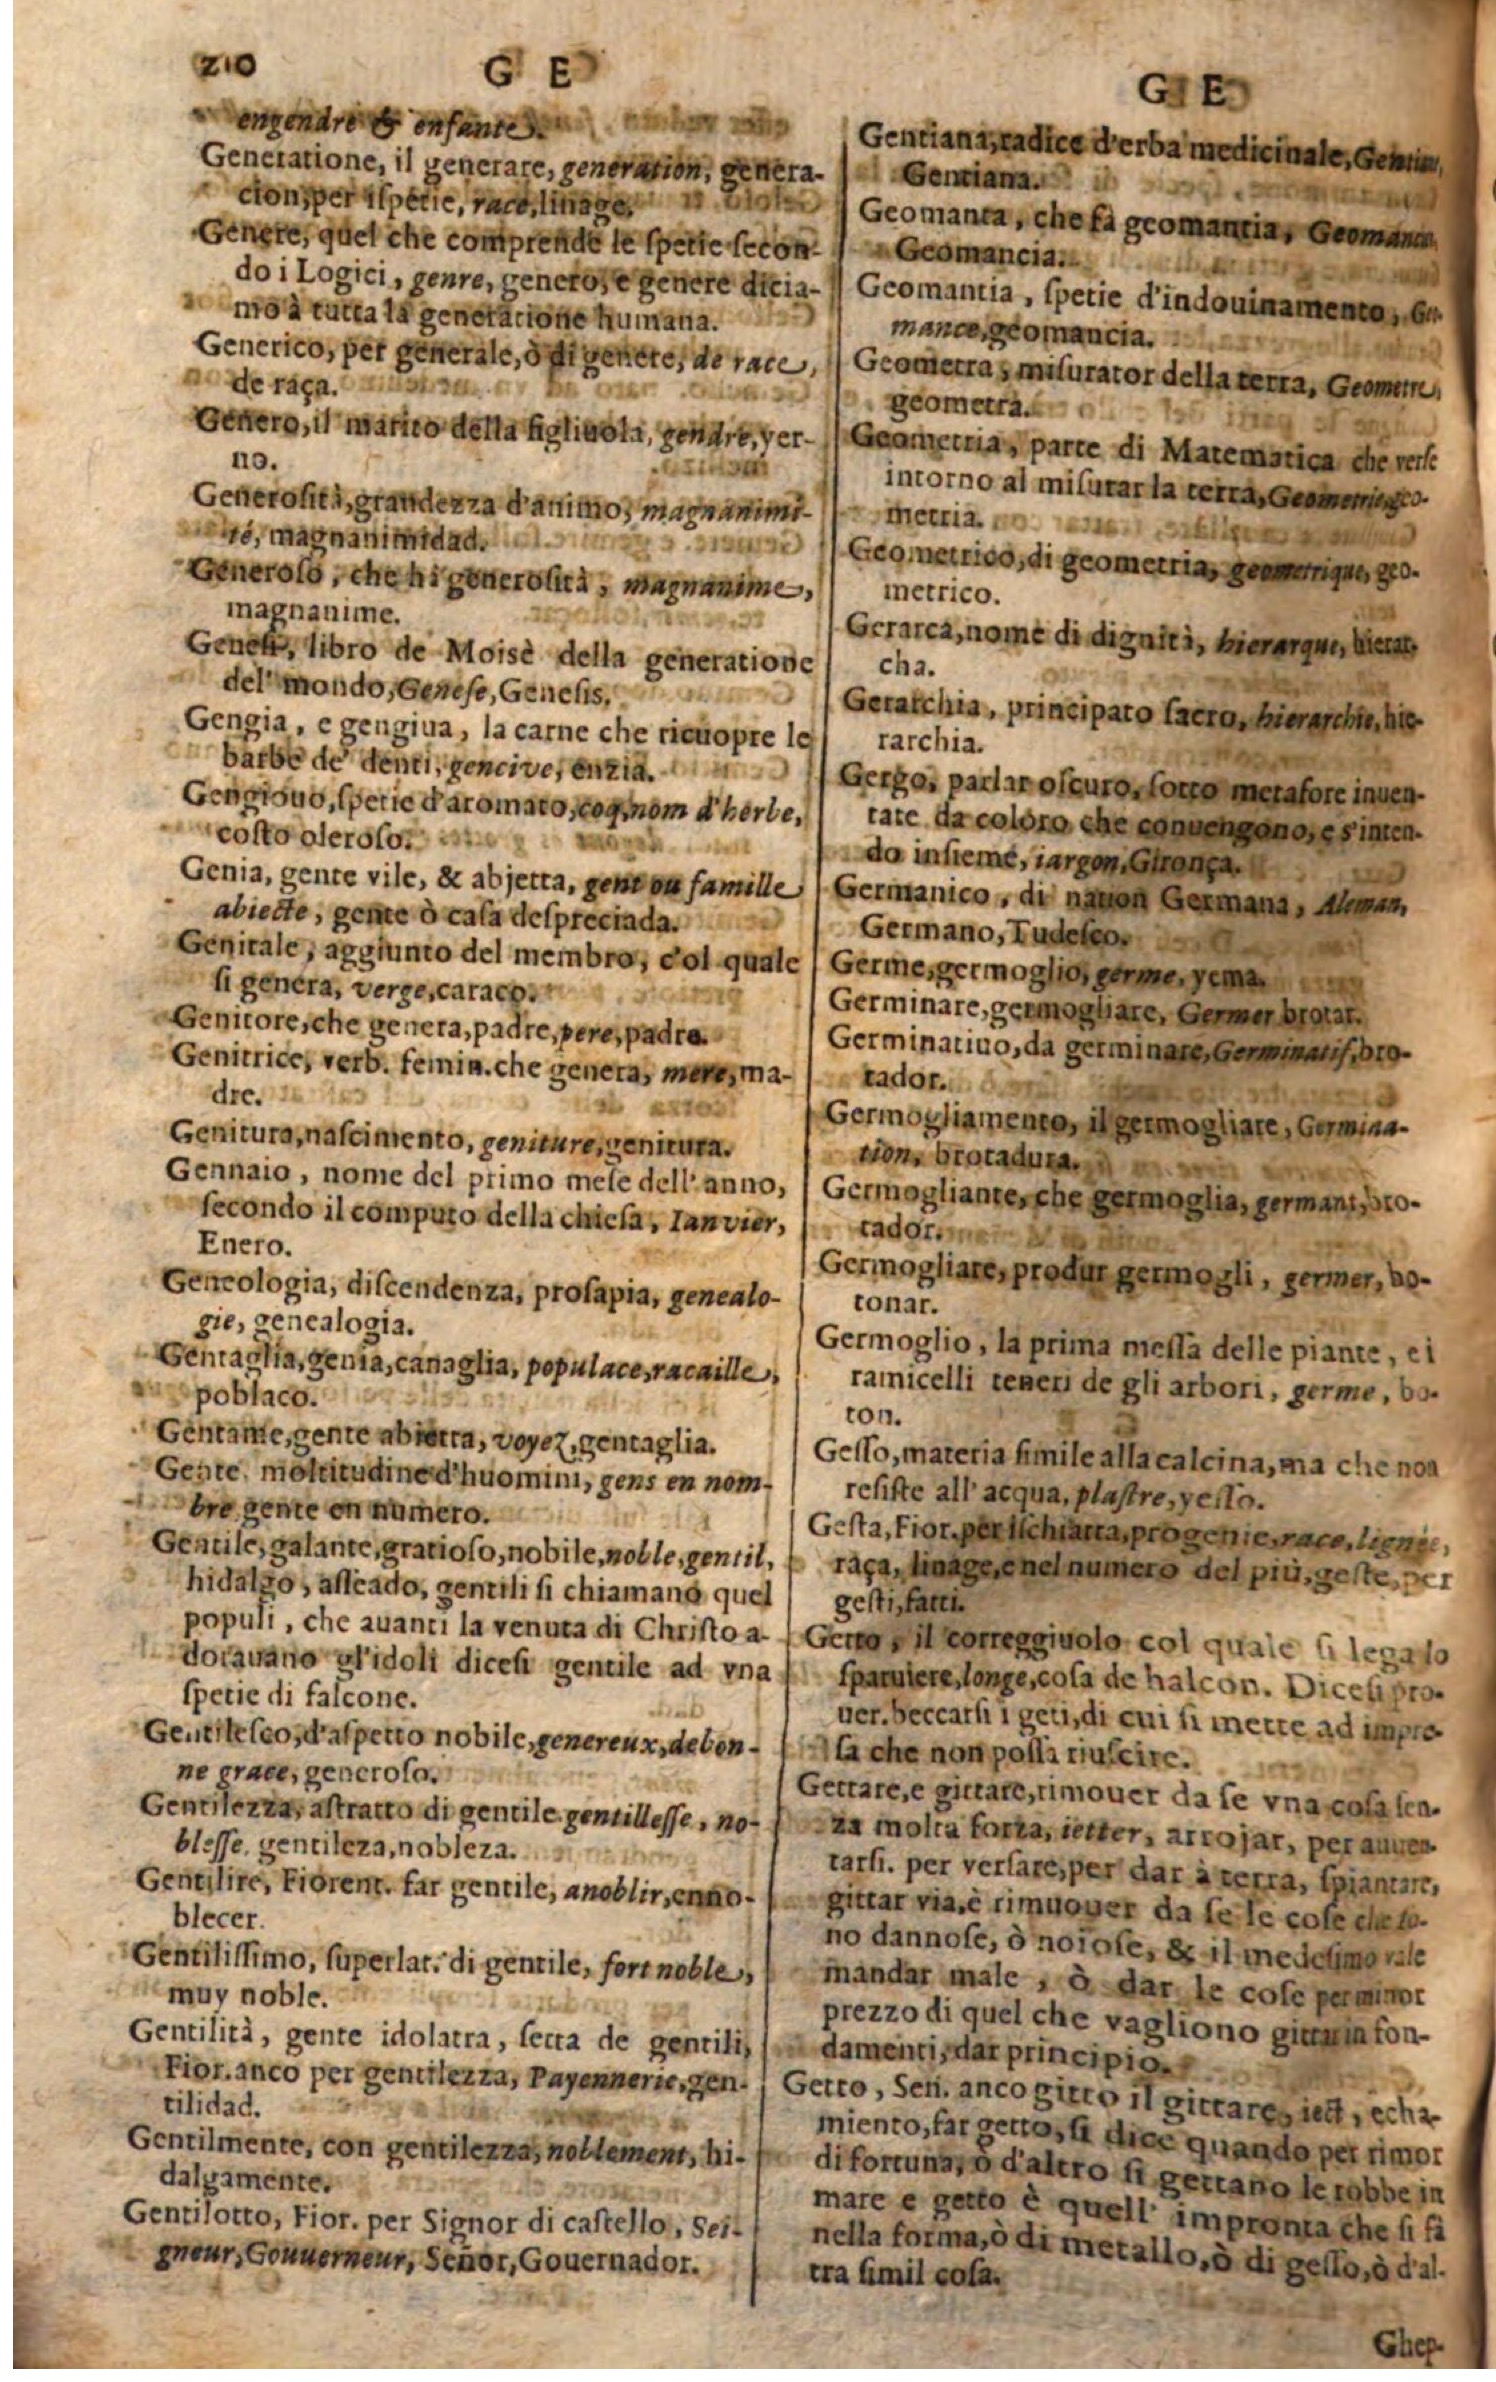 210
G E
engendre & enfante.
Generatione, il generare, generation, genera-
cion, per ispetie, race, linage.
Genere, quel che comprende le spetie secon-
do i Logici, genre, genero, e genere dicia-
mo à tutta la generatione humana.
Generico, per generale, ò di genere, de race,
de raça.
Genero, il marito della figliuola, gendre, yer-
no.
Generosità, grandezza d'animo, magnanimi-
té, magnanimidad.
Generoso, che hà generosità, magnanime,
magnanime.
Genesi, libro de Moisè della generatione
del' mondo, Genese, Genesis.
Gengia, e gengiua, la carne che ricuopre le
barbe de' denti, gencive, enzia.
Gengiouo, spetie d'aromato, coq, nom d'herbe,
costo oleroso.
Genia, gente vile, & abjetta, gent ou famille
abiecte, gente ò casa despreciada.
Genitale, aggiunto del membro, c'ol quale
si genera, verge, caraco.
Genitore, che genera, padre, pere, padre.
Genitrice, verb. femin. che genera, mere, ma-
dre.
Genitura, nascimento, geniture, genitura.
Gennaio, nome del primo mese dell'anno,
secondo il computo della chiesa, Ianvier,
Enero.
Geneologia, discendenza, prosapia, genealo-
gie, genealogia.
Gentaglia, genia, canaglia, populace, racaille,
poblaco.
Gentame, gente abietta, voyez, gentaglia.
Gente. moltitudine d'huomini, gens en nom-
bre gente en numero.
Gentile, galante, gratioso, nobile, noble, gentil,
hidalgo, asseado, gentili si chiamano quel
populi, che auanti la venuta di Christo a-
dorauano gl'idoli dicesi gentile ad vna
spetie di falcone.
Gentilesco, d'aspetto nobile, genereux, de bon-
ne grace, generoso.
Gentilezza, astratto di gentile. gentillesse, no-
blesse. gentileza, nobleza.
Gentilire, Fiorent. far gentile, anoblir, enno-
blecer.
Gentilissimo, superlat. di gentile, fort noble,
muy noble.
Gentilità, gente idolatra, setta de gentili,
Fior. anco per gentilezza, Payennerie, gen-
tilidad.
Gentilmente, con gentilezza, noblement, hi-
dalgamente.
Gentilotto, Fior. per Signor di castello, Sei-
gneur, Gouuerneur, Señor, Gouernador.
G E
Gentiana, radice d'erba medicinale,
Gentiana.
Geomanta, che fà geomantia,
Geomancia.
Geomantia, spetie d'indouinamento, Geo-
mance, geomancia.
Geometra, misurator della terra, Geometre,
geometra.
Geometria, parte di Matematica che verse
intorno al misurar la terra, Geometrie, geo-
metria.
Geometrico, di geometria, geometrique, geo-
metrico.
Gerarca, nome di dignità, hierarque, hierar-
cha.
Gerarchia, principato sacro, hierarchie, hie-
rarchia.
Gergo, parlar oscuro, sotto metafore inuen-
tate da coloro che conuengono, e s'inten-
do insieme, iargon, Gironça.
Germanico, di nation Germana, Aleman,
Germano, Tudesco.
Germe, germoglio, germe, yema.
Germinare, germogliare, Germer brotar.
Germinatiuo, da germinare, Germinatif, bro-
tador.
Germogliamento, il germogliare, Germina-
tion, brotadura.
Germogliante, che germoglia, germant, bro-
tador.
Germogliare, produr germogli, germer, bo-
tonar.
Germoglio, la prima messa delle piante, e i
ramicelli teneri de gli arbori, germe, bo-
ton.
Gesso, materia simile alla calcina, ma che non
resiste all'acqua, plastre, yesso.
Gesta, Fior. per ischiatta, progenie, race, lignée,
raça, linage, e nel numero del più, geste, per
gesti, fatti.
Getto, il correggiuolo col quale si lega lo
sparuiere, longe, cosa de halcon. Dicesi pro-
uer. beccarsi i geti, di cui si mette ad impre-
sa che non possa riuscire.
Gettare, e gittare, rimouer da se vna cosa sen-
za molta forza, ietter, arrojar, per auuen-
tarsi. per versare, per dar à terra, spiantare,
gittar via, è rimuouer da se le cose che so-
no dannose, ò noiose, & il medesimo vale
mandar male, ò dar le cose per minor
prezzo di quel che vagliono gittar in fon-
damenti, dar principio.
Getto, Sen. anco gitto il gittare, iect, echa-
miento, far getto, si dice quando per timor
di fortuna, ò d'altro si gettano le robbe in
mare e getto è quell' impronta che si fà
nella forma, ò di metallo, ò di gesso, ò d'al-
tra simil cosa.
Ghep-